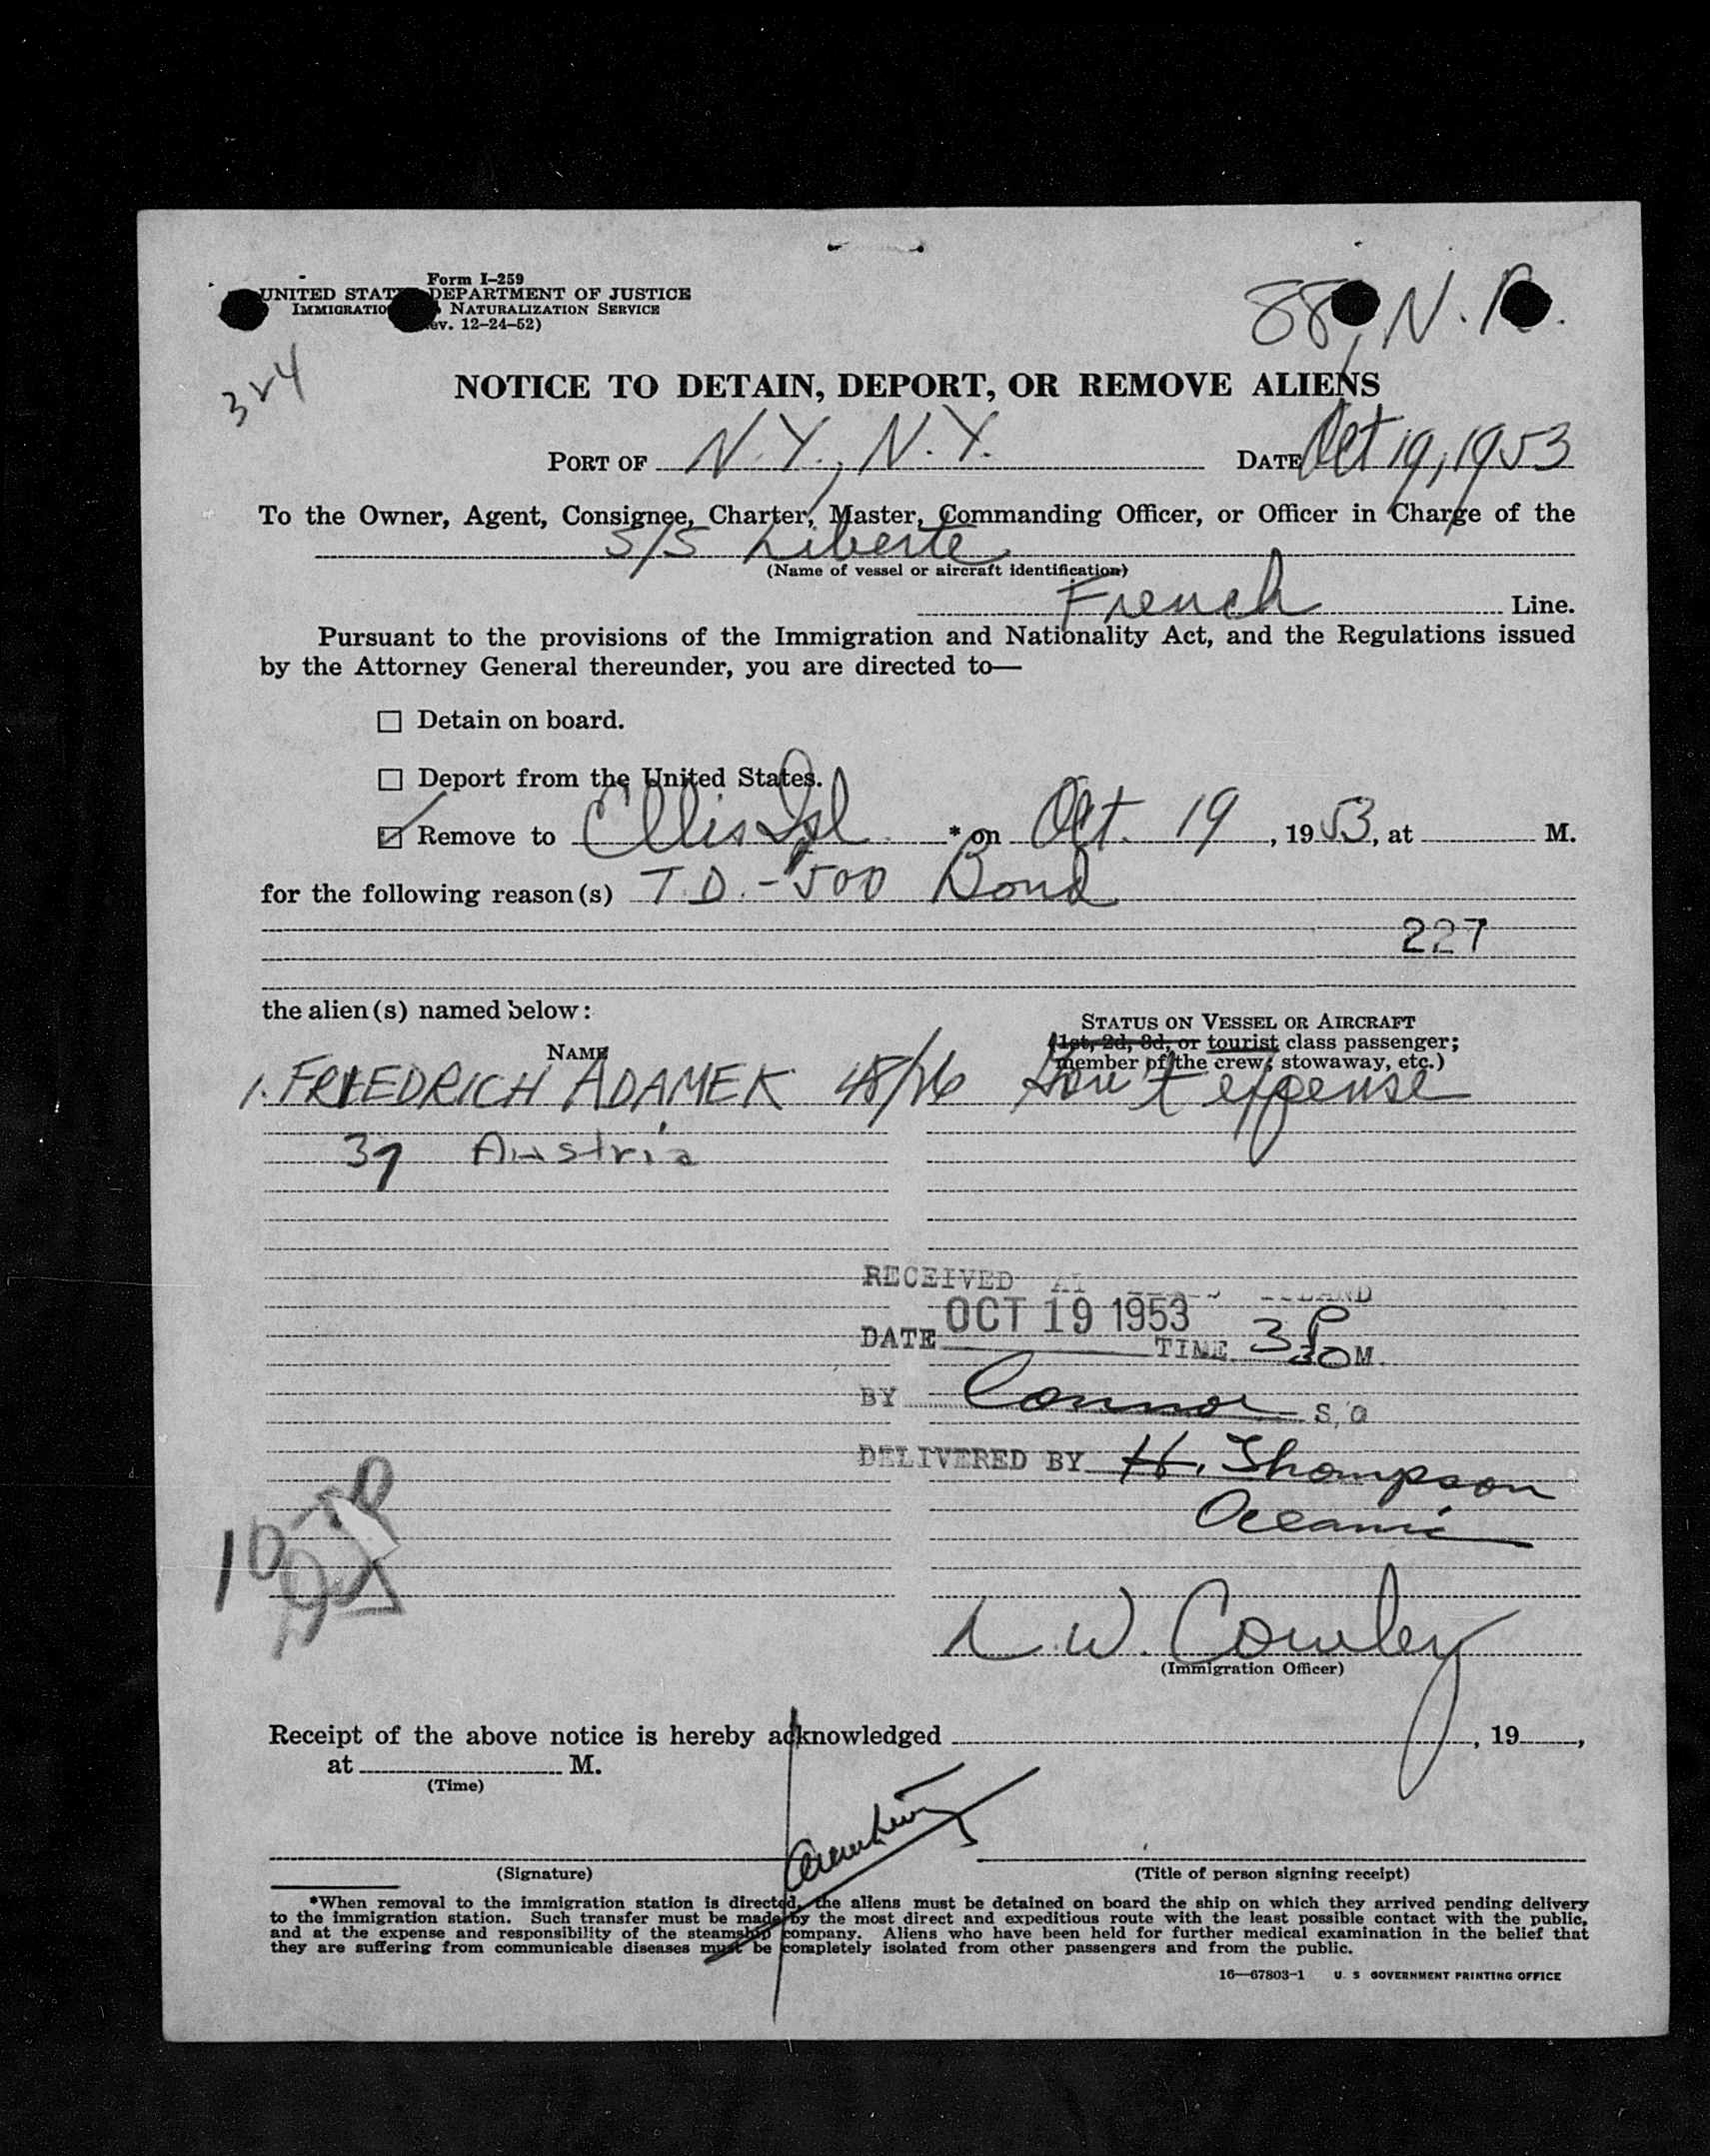 Form I-259
UNITED STAT DEPARTMENT OF JUSTICE
IMMIGRATIO NATURALIZATION SERVICE
ev. 12-24-52)
88, N. R.
324
NOTICE TO DETAIN, DEPORT, OR REMOVE ALIENS
PORT OF N.Y., N.Y. DATE Oct 19, 1953
To the Owner, Agent, Consignee, Charter, Master, Commanding Officer, or Officer in Charge of the
S/S Liberte
(Name of vessel or aircraft identification)
French Line.
Pursuant to the provisions of the Immigration and Nationality Act, and the Regulations issued
by the Attorney General thereunder, you are directed to—
☐ Detain on board.
☐ Deport from the United States.
☑ Remove to Ellis Isl * on Oct. 19, 1953, at M.
for the following reason(s) T.D. - 500 Bond
227
the alien(s) named below:
STATUS ON VESSEL OR AIRCRAFT
(1st, 2d, 3d, or tourist class passenger;
member of the crew; stowaway, etc.)
NAME
1. FRIEDRICH ADAMEK 48/26 Gov't expense
37 Austria
RECEIVED AT ISLAND
DATE OCT 19 1953 TIME 3 30 P M.
BY Connor S.O
DELIVERED BY H. Thompson
Oceanic
L. W. Cowley
(Immigration Officer)
Receipt of the above notice is hereby acknowledged , 19 ,
at M.
(Time)
(Signature)
(Title of person signing receipt)
*When removal to the immigration station is directed, the aliens must be detained on board the ship on which they arrived pending delivery
to the immigration station. Such transfer must be made by the most direct and expeditious route with the least possible contact with the public,
and at the expense and responsibility of the steamship company. Aliens who have been held for further medical examination in the belief that
they are suffering from communicable diseases must be completely isolated from other passengers and from the public.
16—67803-1 U. S. GOVERNMENT PRINTING OFFICE